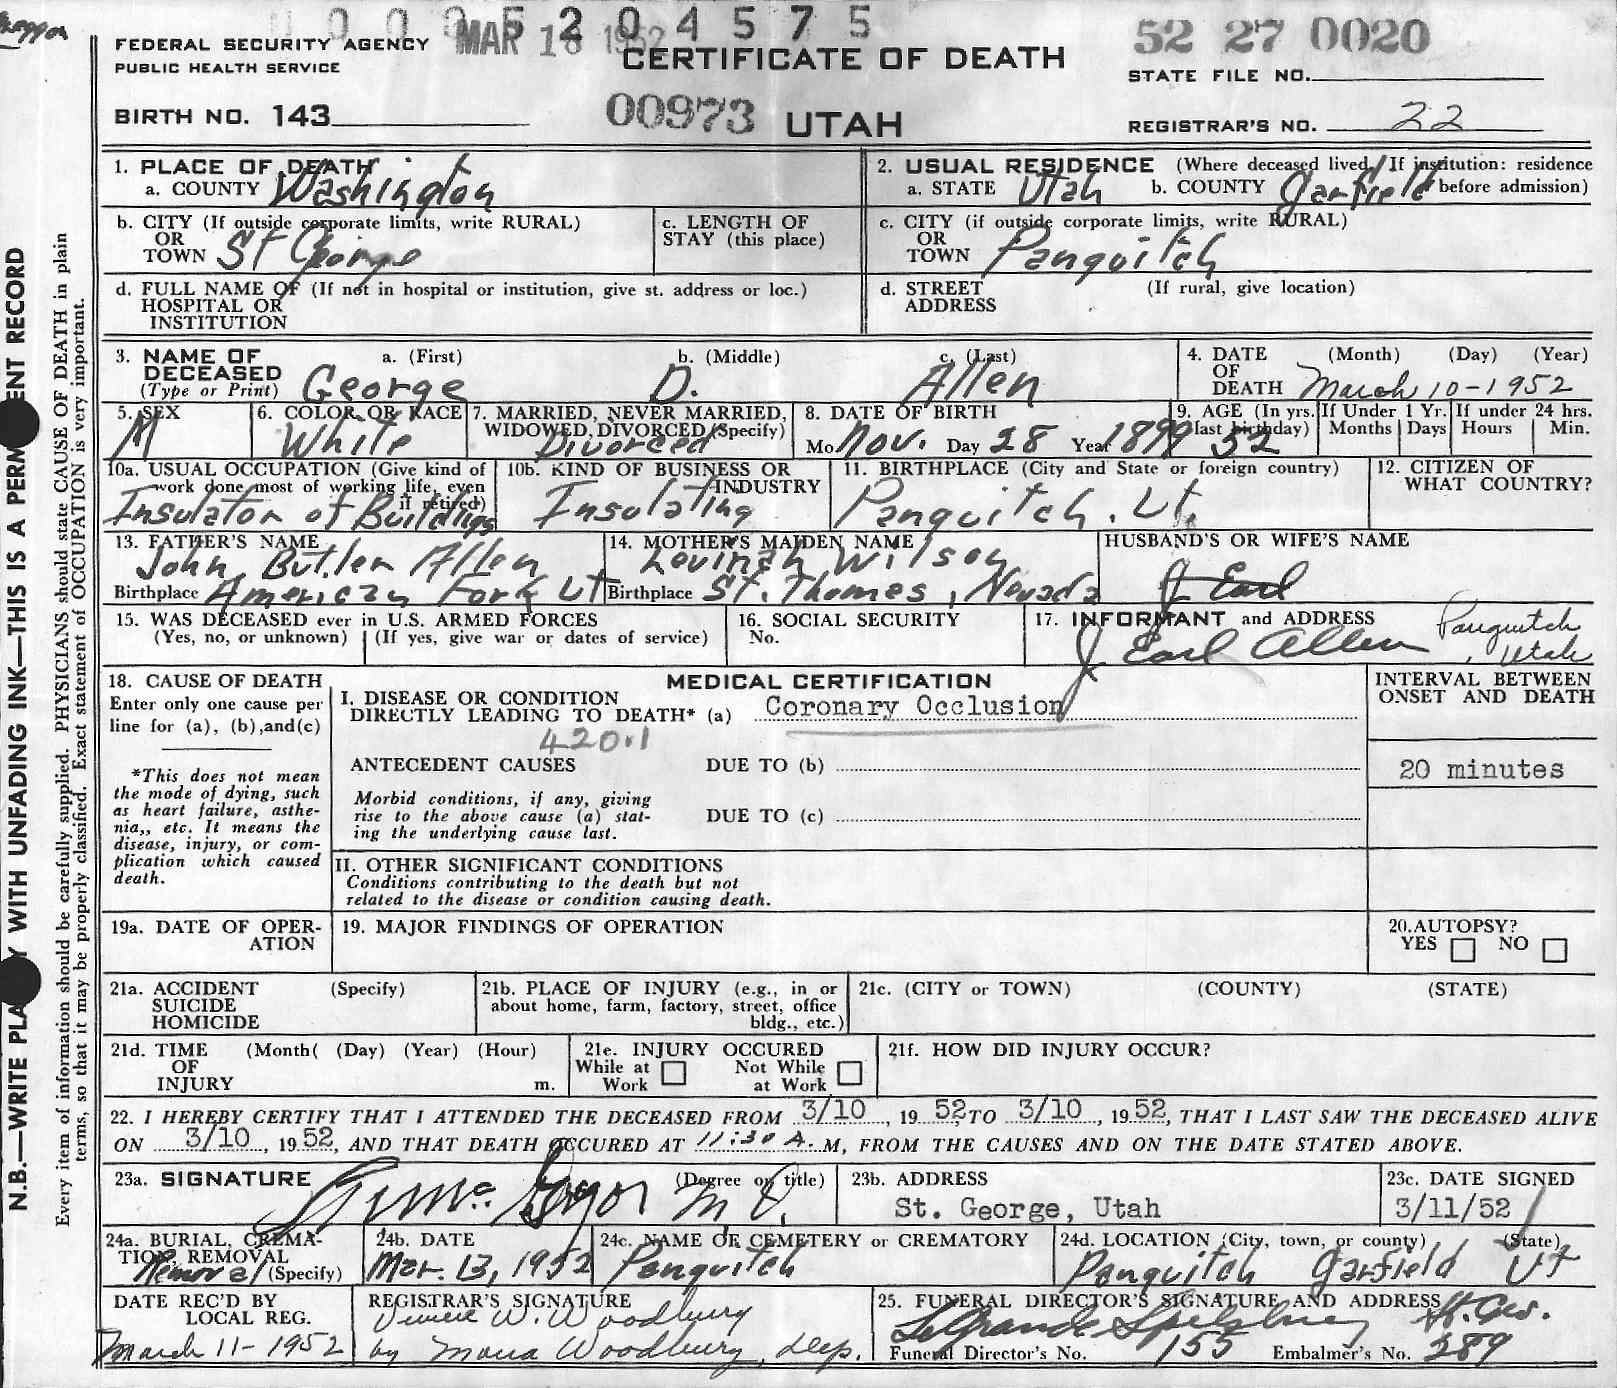 0 0 0 5 2 0 4 5 7 5
MAR 18 1952
52 27 0020
FEDERAL SECURITY AGENCY
PUBLIC HEALTH SERVICE
CERTIFICATE OF DEATH
STATE FILE NO.
BIRTH NO. 143
00973 UTAH
REGISTRAR'S NO. 22
1. PLACE OF DEATH
a. COUNTY Washington
2. USUAL RESIDENCE (Where deceased lived. If institution: residence
a. STATE Utah b. COUNTY Garfield before admission)
b. CITY (If outside corporate limits, write RURAL)
OR
TOWN St George
c. LENGTH OF
STAY (this place)
c. CITY (if outside corporate limits, write RURAL)
OR
TOWN Panguitch
d. FULL NAME OF (If not in hospital or institution, give st. address or loc.)
HOSPITAL OR
INSTITUTION
d. STREET (If rural, give location)
ADDRESS
3. NAME OF a. (First) b. (Middle) c. (Last)
DECEASED
(Type or Print) George D. Allen
4. DATE (Month) (Day) (Year)
OF
DEATH March 10-1952
5. SEX
M
6. COLOR OR RACE
White
7. MARRIED, NEVER MARRIED,
WIDOWED, DIVORCED (Specify)
Divorced
8. DATE OF BIRTH
Mo Nov. Day 28 Year 1899
9. AGE (In yrs.
last birthday) 52
If Under 1 Yr.
Months Days
If under 24 hrs.
Hours Min.
10a. USUAL OCCUPATION (Give kind of
work done most of working life, even
if retired)
Insulator of Buildings
10b. KIND OF BUSINESS OR
INDUSTRY
Insulating
11. BIRTHPLACE (City and State or foreign country)
Panguitch, Ut.
12. CITIZEN OF
WHAT COUNTRY?
13. FATHER'S NAME
John Butler Allen
Birthplace American Fork Ut
14. MOTHER'S MAIDEN NAME
Levinah Wilson
Birthplace St. Thomas, Nevada
HUSBAND'S OR WIFE'S NAME
J Earl
15. WAS DECEASED ever in U.S. ARMED FORCES
(Yes, no, or unknown) (If yes, give war or dates of service)
16. SOCIAL SECURITY
No.
17. INFORMANT and ADDRESS Panguitch
J Earl Allen , Utah
18. CAUSE OF DEATH
Enter only one cause per
line for (a), (b), and (c)
*This does not mean
the mode of dying, such
as heart failure, asthe-
nia,, etc. It means the
disease, injury, or com-
plication which caused
death.
MEDICAL CERTIFICATION
I. DISEASE OR CONDITION
DIRECTLY LEADING TO DEATH* (a) Coronary Occlusion
420.1
ANTECEDENT CAUSES DUE TO (b)
Morbid conditions, if any, giving
rise to the above cause (a) stat- DUE TO (c)
ing the underlying cause last.
II. OTHER SIGNIFICANT CONDITIONS
Conditions contributing to the death but not
related to the disease or condition causing death.
INTERVAL BETWEEN
ONSET AND DEATH
20 minutes
19a. DATE OF OPER-
ATION
19. MAJOR FINDINGS OF OPERATION
20. AUTOPSY?
YES NO
21a. ACCIDENT (Specify)
SUICIDE
HOMICIDE
21b. PLACE OF INJURY (e.g., in or
about home, farm, factory, street, office
bldg., etc.)
21c. (CITY or TOWN) (COUNTY) (STATE)
21d. TIME (Month( (Day) (Year) (Hour)
OF
INJURY m.
21e. INJURY OCCURED
While at Not While
Work at Work
21f. HOW DID INJURY OCCUR?
22. I HEREBY CERTIFY THAT I ATTENDED THE DECEASED FROM 3/10, 1952, TO 3/10, 1952, THAT I LAST SAW THE DECEASED ALIVE
ON 3/10, 1952, AND THAT DEATH OCCURED AT 11:30 A. M, FROM THE CAUSES AND ON THE DATE STATED ABOVE.
23a. SIGNATURE (Degree or title)
M.D.
23b. ADDRESS
St. George, Utah
23c. DATE SIGNED
3/11/52
24a. BURIAL, CREMA-
TION, REMOVAL
Removal (Specify)
24b. DATE
Mar. 13, 1952
24c. NAME OF CEMETERY OR CREMATORY
Panguitch
24d. LOCATION (City, town, or county) (State)
Panguitch Garfield UT
DATE REC'D BY
LOCAL REG.
March 11-1952
REGISTRAR'S SIGNATURE
W. Woodbury
by Mona Woodbury, dep.
25. FUNERAL DIRECTOR'S SIGNATURE AND ADDRESS
LeGrande Spilsbury St. Geo.
Funeral Director's No. 155 Embalmer's No. 289
N.B.—WRITE PLA Y WITH UNFADING INK—THIS IS A PERM ENT RECORD
Every item of information should be carefully supplied. PHYSICIANS should state CAUSE OF DEATH in plain
terms, so that it may be properly classified. Exact statement of OCCUPATION is very important.